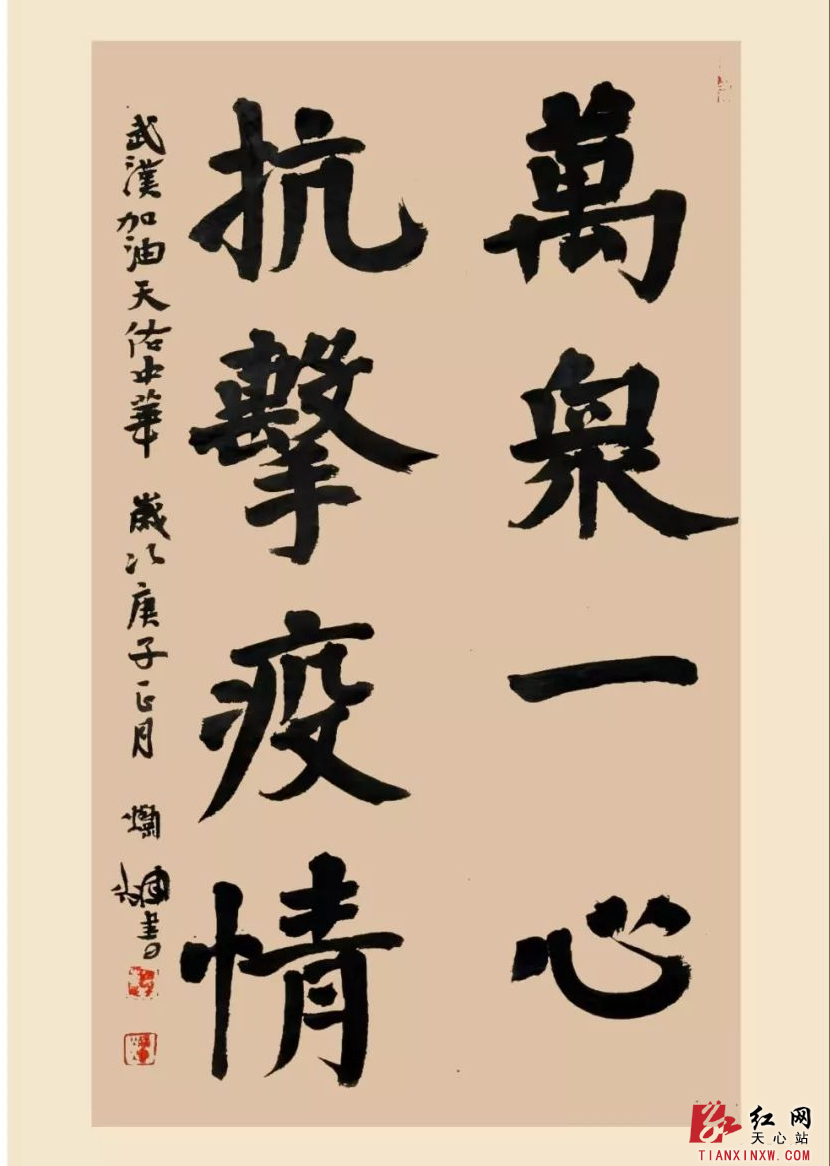 萬眾一心
抗擊疫情
武漢加油天佑中華 歲次庚子正月
書
红网
天心站
TIANXINXW.COM